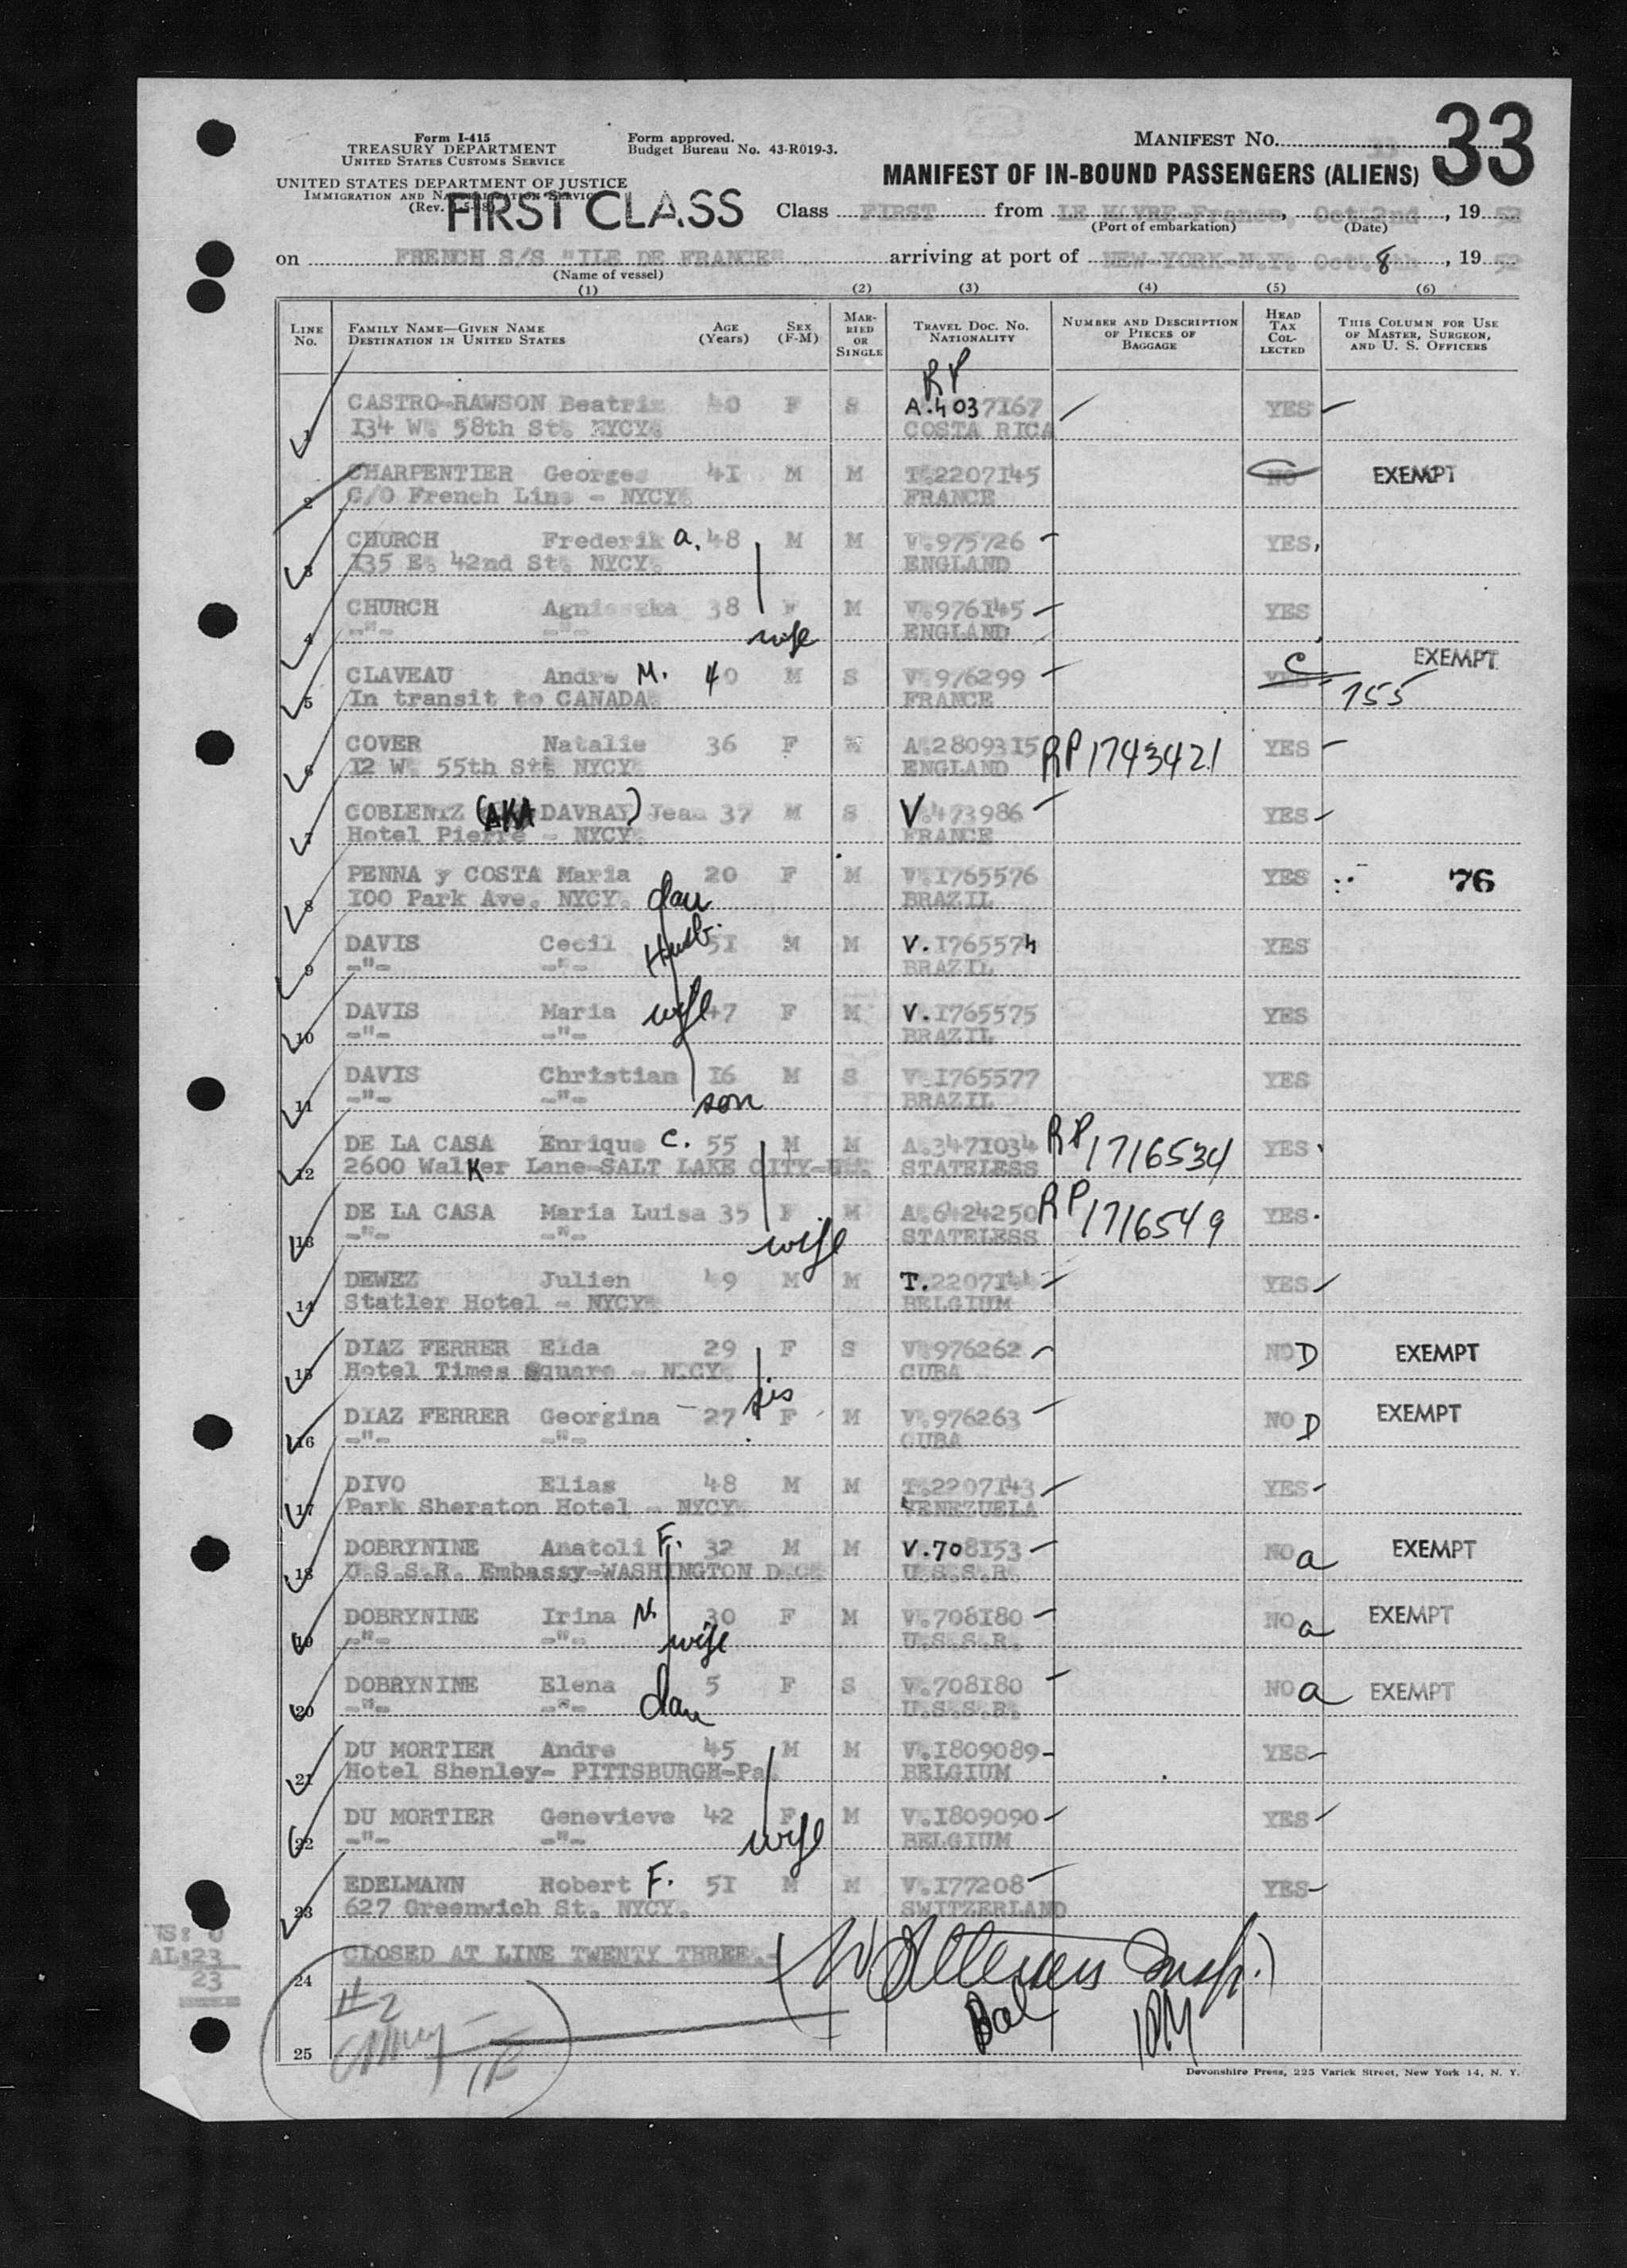 Form I-415
TREASURY DEPARTMENT
UNITED STATES CUSTOMS SERVICE
UNITED STATES DEPARTMENT OF JUSTICE
IMMIGRATION AND NATURALIZATION SERVICE
(Rev.
Form approved.
Budget Bureau No. 43-R019-3.
MANIFEST NO. 33
MANIFEST OF IN-BOUND PASSENGERS (ALIENS)
FIRST CLASS
Class FIRST from LE HAVRE-France, Oct. 2nd, 19 52
(Port of embarkation) (Date)
on FRENCH S/S "ILE DE FRANCE" arriving at port of NEW-YORK-N.Y. Oct. 8th, 19 52
(Name of vessel)
(1) (2) (3) (4) (5) (6)
LINE NO. FAMILY NAME—GIVEN NAME DESTINATION IN UNITED STATES AGE (Years) SEX (F-M) MARRIED OR SINGLE TRAVEL DOC. NO. NATIONALITY NUMBER AND DESCRIPTION OF PIECES OF BAGGAGE HEAD TAX COLLECTED THIS COLUMN FOR USE OF MASTER, SURGEON, AND U. S. OFFICERS
RP
CASTRO-RAWSON Beatriz 40 F S A.4037167 YES
1 134 W. 58th St. NYCY. COSTA RICA
CHARPENTIER Georges 41 M M T.2207145 NO EXEMPT
2 C/O French Line - NYCY. FRANCE
CHURCH Frederik a. 48 M M V.975726 YES
3 135 E. 42nd St. NYCY. ENGLAND
CHURCH Agnieszka 38 F M V.976145 YES
4 -"- -"- wife ENGLAND
CLAVEAU Andre M. 40 M S V.976299 YES C EXEMPT
5 In transit to CANADA. FRANCE 155
COVER Natalie 36 F A.2809315 RP1743421 YES
6 12 W. 55th St. NYCY. ENGLAND
COBLENTZ (AKA DAVRAY) Jean 37 M S V.473986 YES
7 Hotel Pierre - NYCY. FRANCE
PENNA y COSTA Maria 20 F M V.1765576 YES 76
8 100 Park Ave. NYCY. dau BRAZIL
DAVIS Cecil Husb. 51 M M V.1765574 YES
9 -"- -"- BRAZIL
DAVIS Maria wife 47 F M V.1765575 YES
10 -"- -"- BRAZIL
DAVIS Christian 16 M S V.1765577 YES
11 -"- -"- son BRAZIL
DE LA CASA Enrique C. 55 M M A.3471034 RP1716534 YES
12 2600 Walker Lane-SALT LAKE CITY- STATELESS
DE LA CASA Maria Luisa 35 F M A.6424250 RP1716549 YES
13 -"- -"- wife STATELESS
DEWEZ Julien 49 M M T.2207144 YES
14 Statler Hotel - NYCY. BELGIUM
DIAZ FERRER Elda 29 F S V.976262 NO D EXEMPT
15 Hotel Times Square - NYCY. CUBA
DIAZ FERRER Georgina 27 sis F M V.976263 NO D EXEMPT
16 -"- -"- CUBA
DIVO Elias 48 M M T.2207143 YES
17 Park Sheraton Hotel - NYCY. VENEZUELA
DOBRYNINE Anatoli F. 32 M M V.708153 NO a EXEMPT
18 U.S.S.R. Embassy-WASHINGTON D.C. U.S.S.R.
DOBRYNINE Irina N. 30 F M V.708180 NO a EXEMPT
19 -"- -"- wife U.S.S.R.
DOBRYNINE Elena 5 F S V.708180 NO a EXEMPT
20 -"- -"- dau U.S.S.R.
DU MORTIER Andre 45 M M V.1809089 YES
21 Hotel Shenley- PITTSBURGH-Pa. BELGIUM
DU MORTIER Genevieve 42 F M V.1809090 YES
22 -"- -"- wife BELGIUM
EDELMANN Robert F. 51 M M V.177208 YES
23 627 Greenwich St. NYCY. SWITZERLAND
US: 0
AL:23
23
CLOSED AT LINE TWENTY THREE.-
24
#2
25
Devonshire Press, 225 Varick Street, New York 14, N. Y.